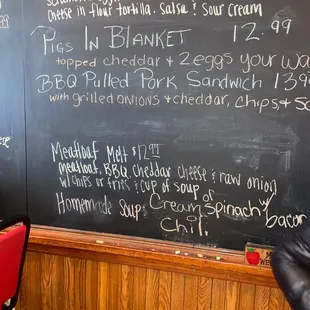 cheese in flour tortilla. Salsa & Sour Cream
Pigs In Blanket 12.99
topped cheddar & 2 eggs your wa
BBQ Pulled Pork Sandwich 139
with grilled onions & cheddar, chips & so
Meatloaf Melt $12.99
meatloaf, BBQ, cheddar cheese & raw onion
w/ chips or fries & cup of soup
Homemade Soup of Cream Spinach w/ bacon
Chili